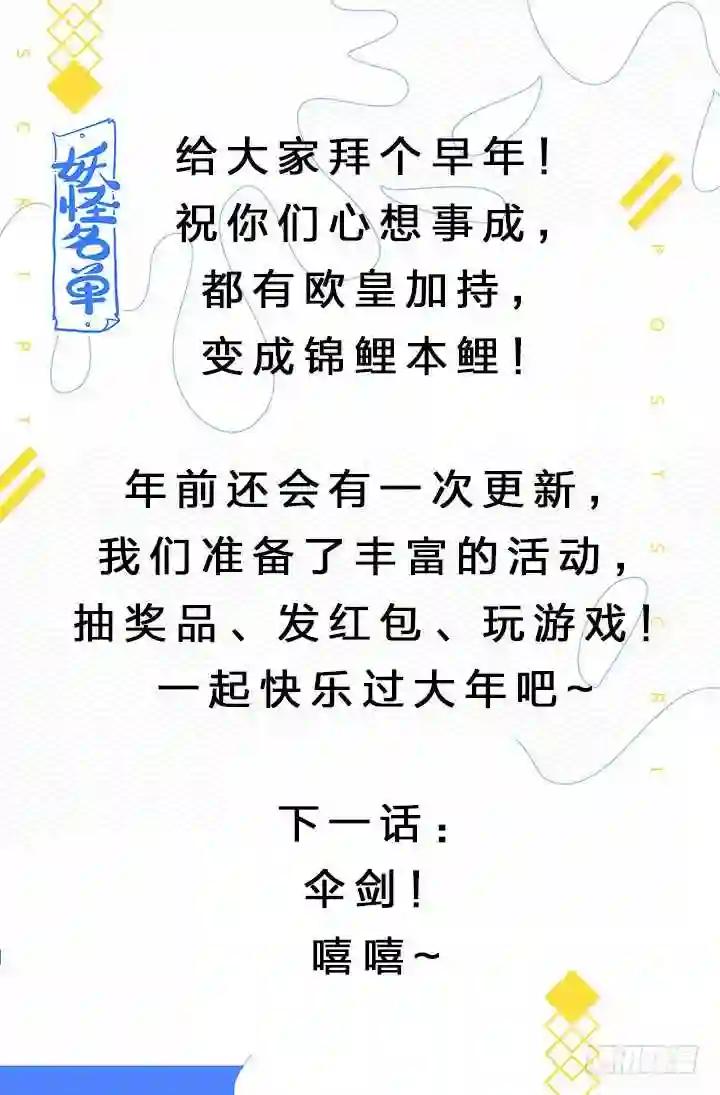 妖怪名单
给大家拜个早年！
祝你们心想事成，
都有欧皇加持，
变成锦鲤本鲤！
年前还会有一次更新，
我们准备了丰富的活动，
抽奖品、发红包、玩游戏！
一起快乐过大年吧~
下一话：
伞剑！
嘻嘻~
SCRIPT
POSTSCRI